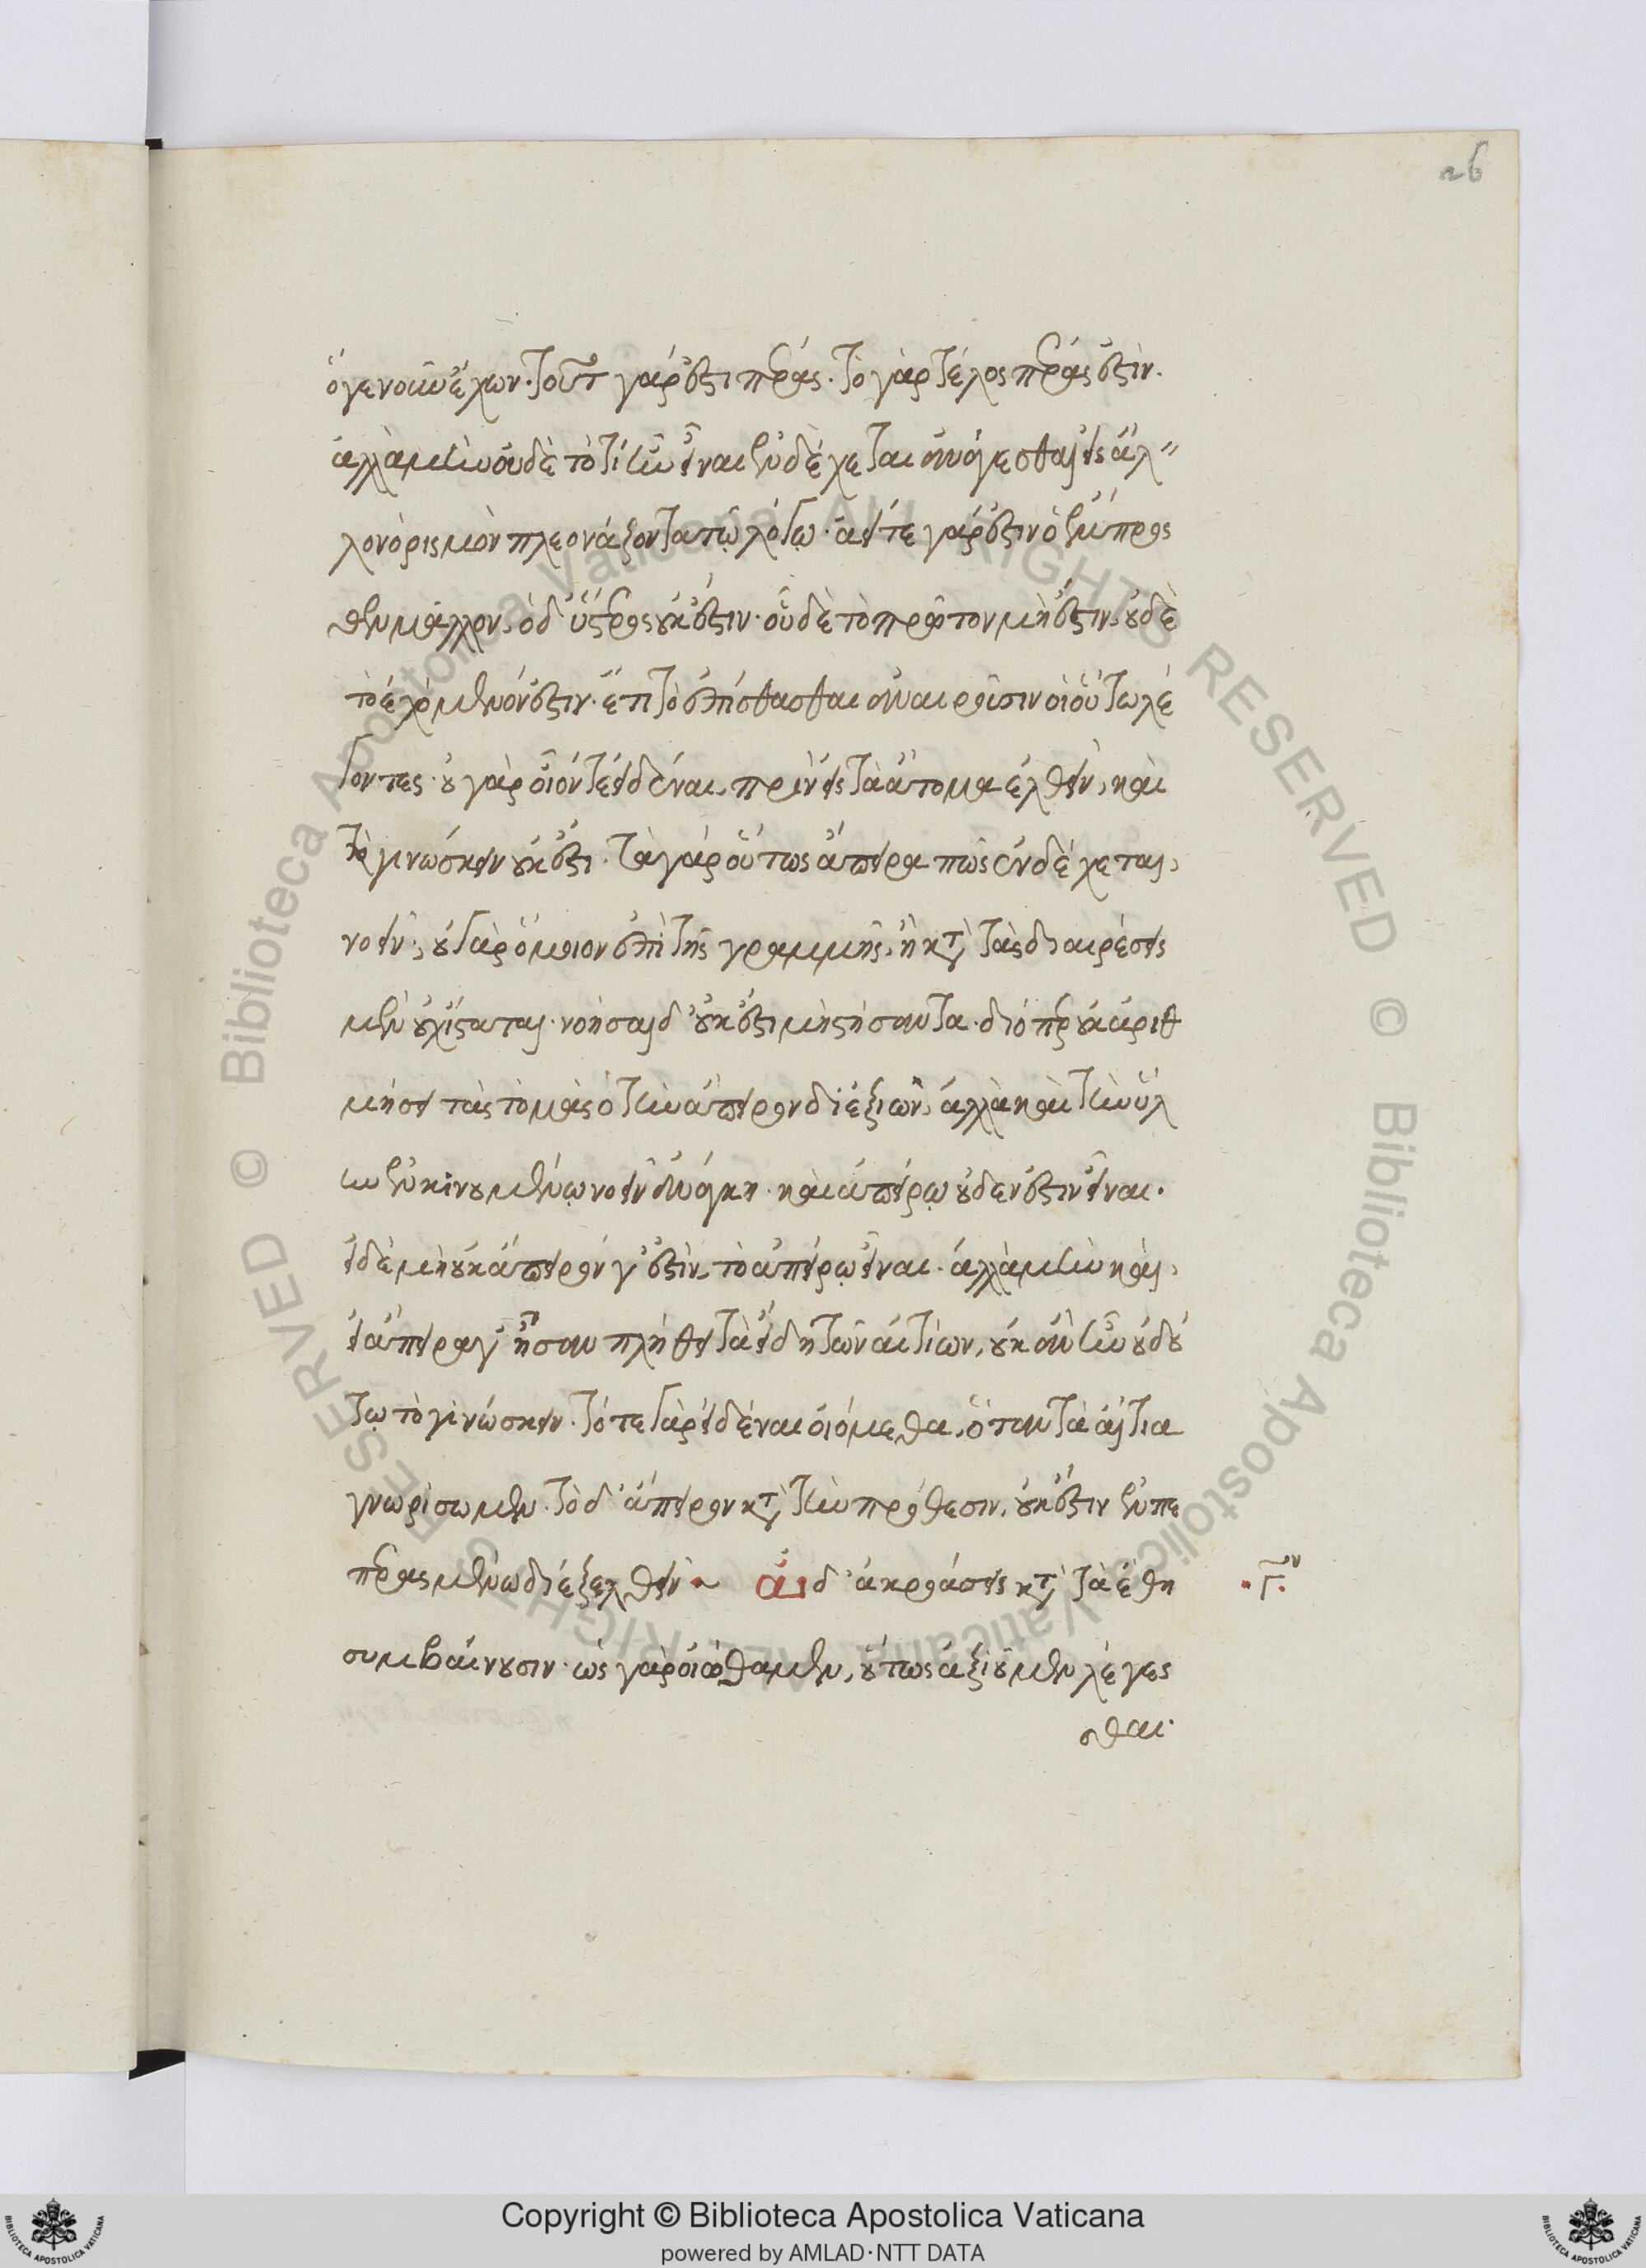 26
ὅ γε νοῦν ἔχων. τοῦτ γάρ ἐστι πέρας. τὸ γὰρ τέλος πέρας ἐστίν.
ἀλλὰ μὴν οὐδὲ τὸ τί ἦν εἶναι ἐνδέχεται ἀνάγεσθαι εἰς ἄλ
λον ὁρισμὸν πλεονάζοντα τῷ λόγῳ. ἀεί τε γάρ ἐστιν ὁ ἔμπροσ
θεν μᾶλλον, ὁ δ' ὕστερος οὐκ ἔστιν. οὗ δὲ τὸ πρῶτον μὴ ἔστιν, οὐδὲ
τὸ ἐχόμενόν ἐστιν. ἔτι τὸ ἐπίστασθαι ἀναιροῦσιν οἱ οὕτω λέ
γοντες. οὐ γὰρ οἷόν τε εἰδέναι, πρὶν εἰς τὰ ἄτομα ἐλθεῖν, καὶ
τὸ γινώσκειν οὐκ ἔστι. τὰ γὰρ οὕτως ἄπειρα πῶς ἐνδέχεται,
νοεῖν, οὐ γὰρ ὅμοιον ἐπὶ τῆς γραμμῆς, ἣ κατὰ τὰς διαιρέσεις
μὲν οὐχ ἵσταται. νοῆσαι δ' οὐκ ἔστι μὴ στήσαντα. διόπερ οὐκ ἀριθ
μήσει τὰς τομὰς ὁ τὴν ἄπειρον διεξιών, ἀλλὰ καὶ τὴν ὕλ
ην ἐν κινουμένῳ νοεῖν ἀνάγκη. καὶ ἀπείρῳ οὐδέν ἐστιν εἶναι.
εἰ δὲ μὴ οὐκ ἄπειρόν γ' ἐστὶν, τὸ ἀπείρῳ εἶναι. ἀλλὰ μὴν καὶ,
εἰ ἄπειρά γ' ἦσαν πλήθει τὰ εἴδη τῶν αἰτίων, οὐκ ἂν ἦν οὐδ' οὕ
τω τὸ γινώσκειν. τότε γὰρ εἰδέναι οἰόμεθα, ὅταν τὰ αἴτια
γνωρίσωμεν. τὸ δ' ἄπειρον κατὰ τὴν πρόθεσιν, οὐκ ἔστιν ἐν πε
περασμένῳ διεξελθεῖν αἱ δ' ἀκροάσεις κατὰ τὰ ἔθη
Γον
συμβαίνουσιν. ὡς γὰρ εἰώθαμεν, οὕτως ἀξιοῦμεν λέγεσ
σθαι.
Copyright © Biblioteca Apostolica Vaticana
powered by AMLAD·NTT DATA